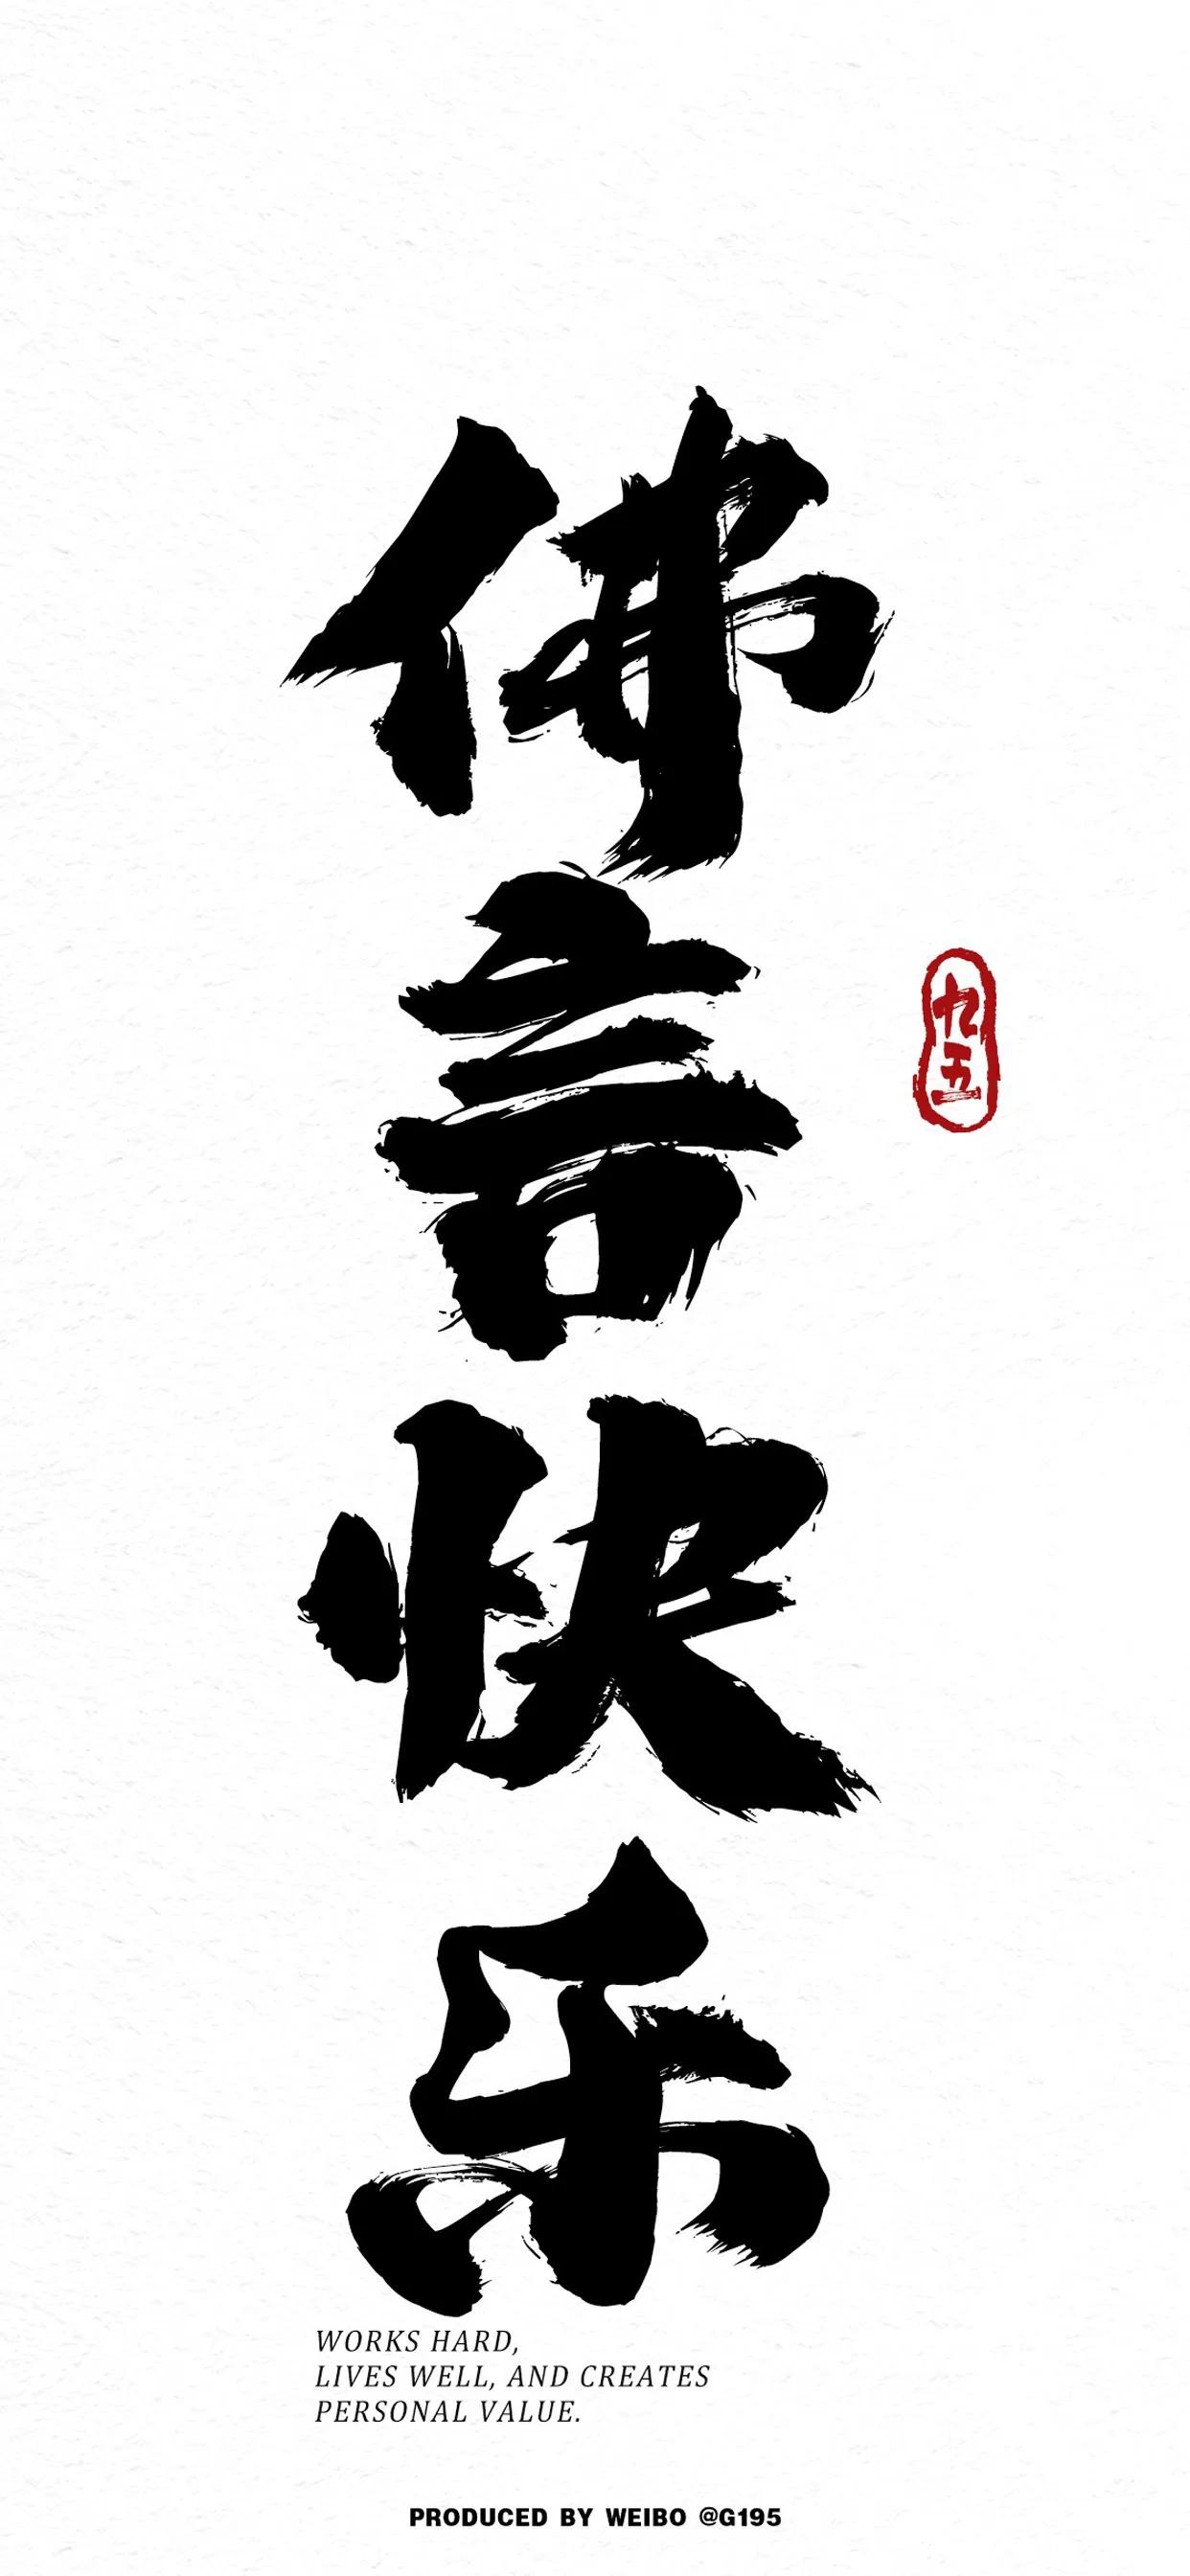 佛言快乐
九五
WORKS HARD,
LIVES WELL, AND CREATES
PERSONAL VALUE.
PRODUCED BY WEIBO @G195